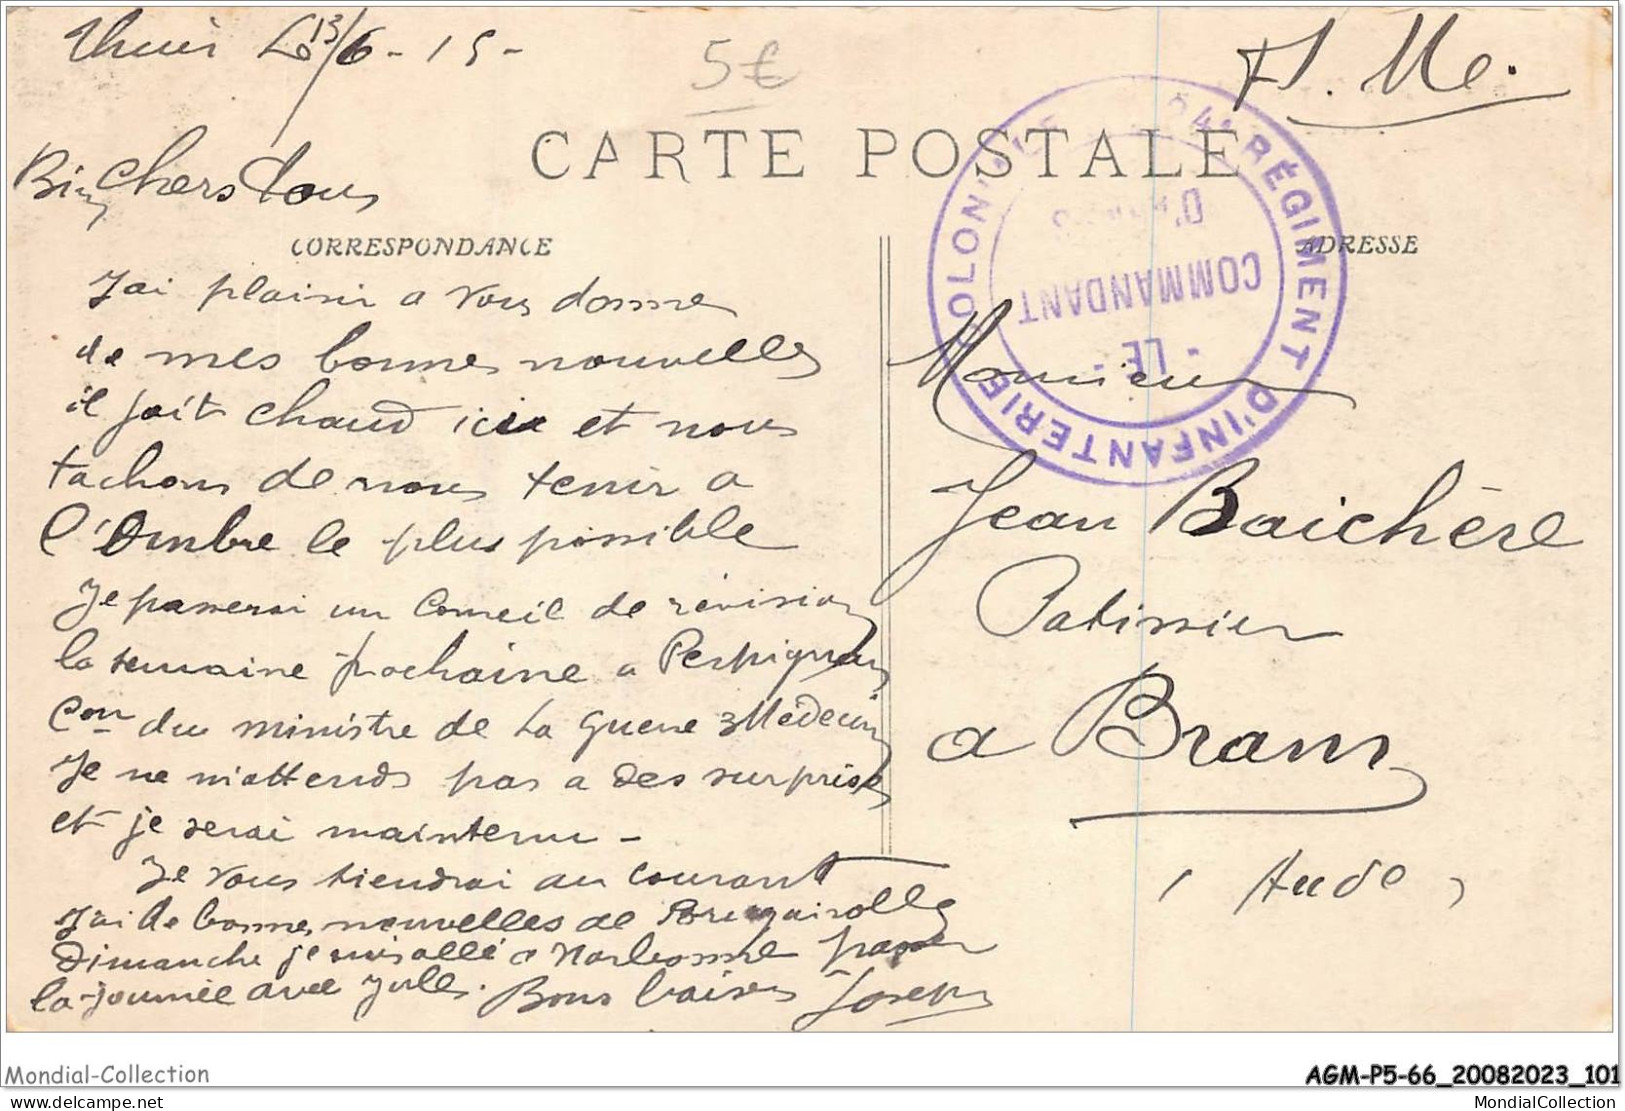 Thuir Le 13/6 - 15 -
F. Me.
5€
CARTE POSTALE
Bien Chers tous
CORRESPONDANCE
ADRESSE
24e RÉGIMENT D'INFANTERIE COLONIALE
LE
COMMANDANT
J'ai plaisir a vous donner
de mes bonnes nouvelles
il fait chaud ici et nous
tachons de nous tenir a
l'Ombre le plus possible
Je passerai un Conseil de révision
la semaine prochaine a Perpignan
Con du ministre de La Guerre 3 Médecins
Je ne m'attends pas a des surprises
et je serai maintenu -
Je vous tiendrai au courant
J'ai de bonnes nouvelles de
Dimanche je suis allé a Narbonne passer
la journée avec Jules. Bons baisers Joseph
Monsieur
Jean Baichère
Patissier
a Bram
(Aude)
Mondial-Collection
AGM-P5-66_20082023_101
www.delcampe.net
MondialCollection